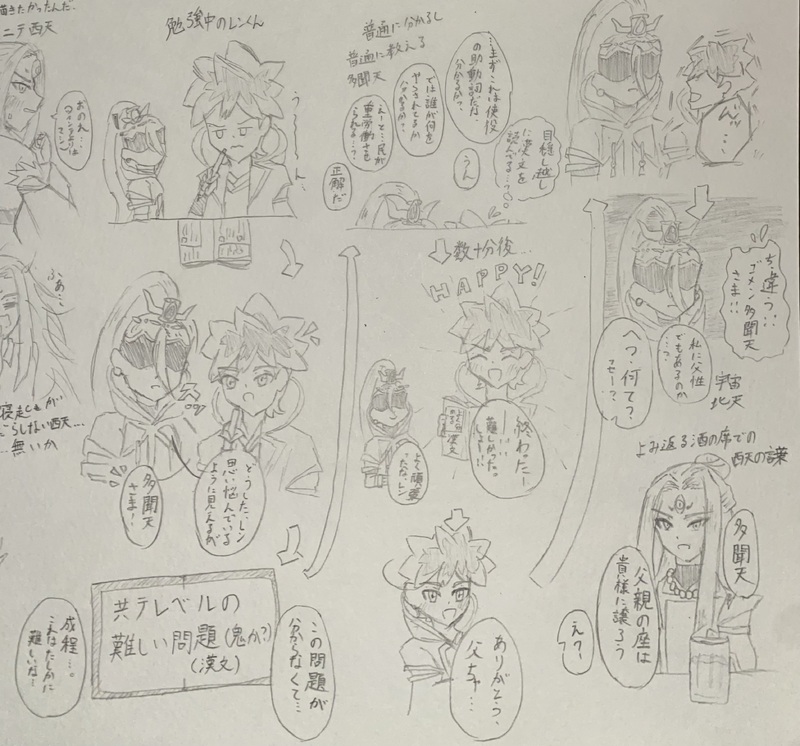 描きたかったんだ.
ニテ西天
勉強中のレンくん
う〜る〜ん.
どうした、レン
思い悩んでいる
ように見えるが
多聞天
さま…
共テレベルの
難しい問題(鬼か?)
(漢文)
この問題が
分からなくて…
成程…。
これはたしかに
難しいな…
普通に分かるし
普通に教える
多聞天
…まずこれは使役
の助動詞だな、
分かるか?
うん
では誰が何を
やらされてるか
分かるか?
えーと…民が
重労働を
させられる…?
正解だ
目隠し越し
に漢文を
読んでる…?
数十分後…
HAPPY!
終わったー
難しかった。
よく頑張
ったな、レン
漢文
ありがとう、
父ちゃ…
んッ…
ち、違う!!
ゴメン多聞天
さま!!
私に父性
でもあるのか
…?
へっ、何て?
宇宙
北天
よみ返る酒の席での
西天の言葉
多聞天
父親の座は
貴様に譲ろう
えっ…
ふあ…
寝起きが
だらしない西天…
無いか